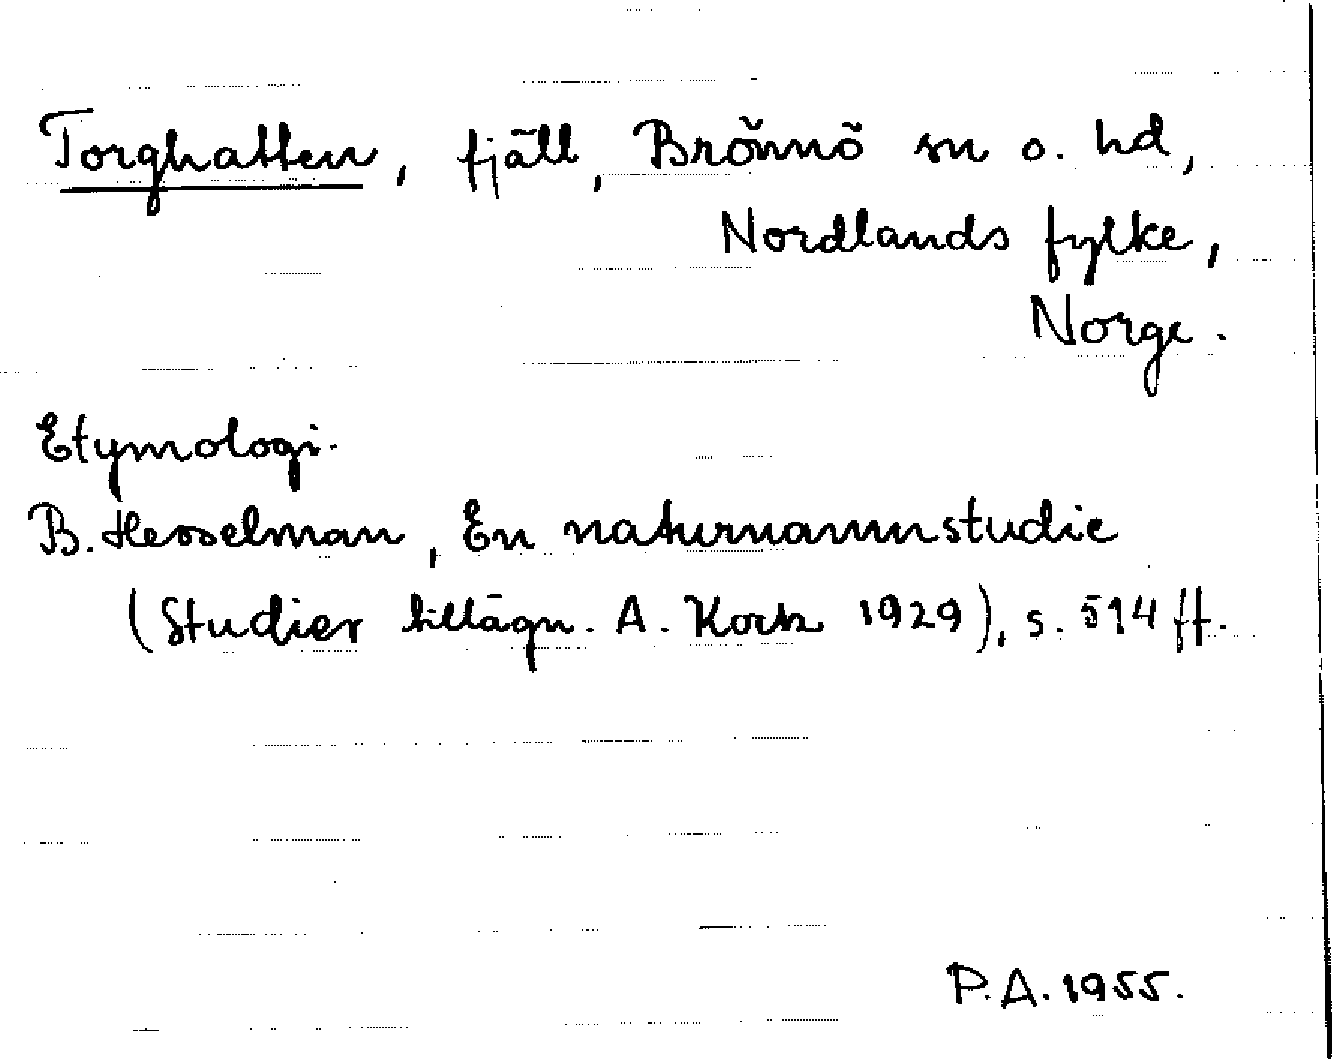 Torghatten, fjäll, Brönnö sn o. hd,
Nordlands fylke,
Norge.
Etymologi.
B. Hesselman, En naturnamnstudie
(Studier tillägn. A. Kock 1929), s. 514 ff.
P.A. 1955.